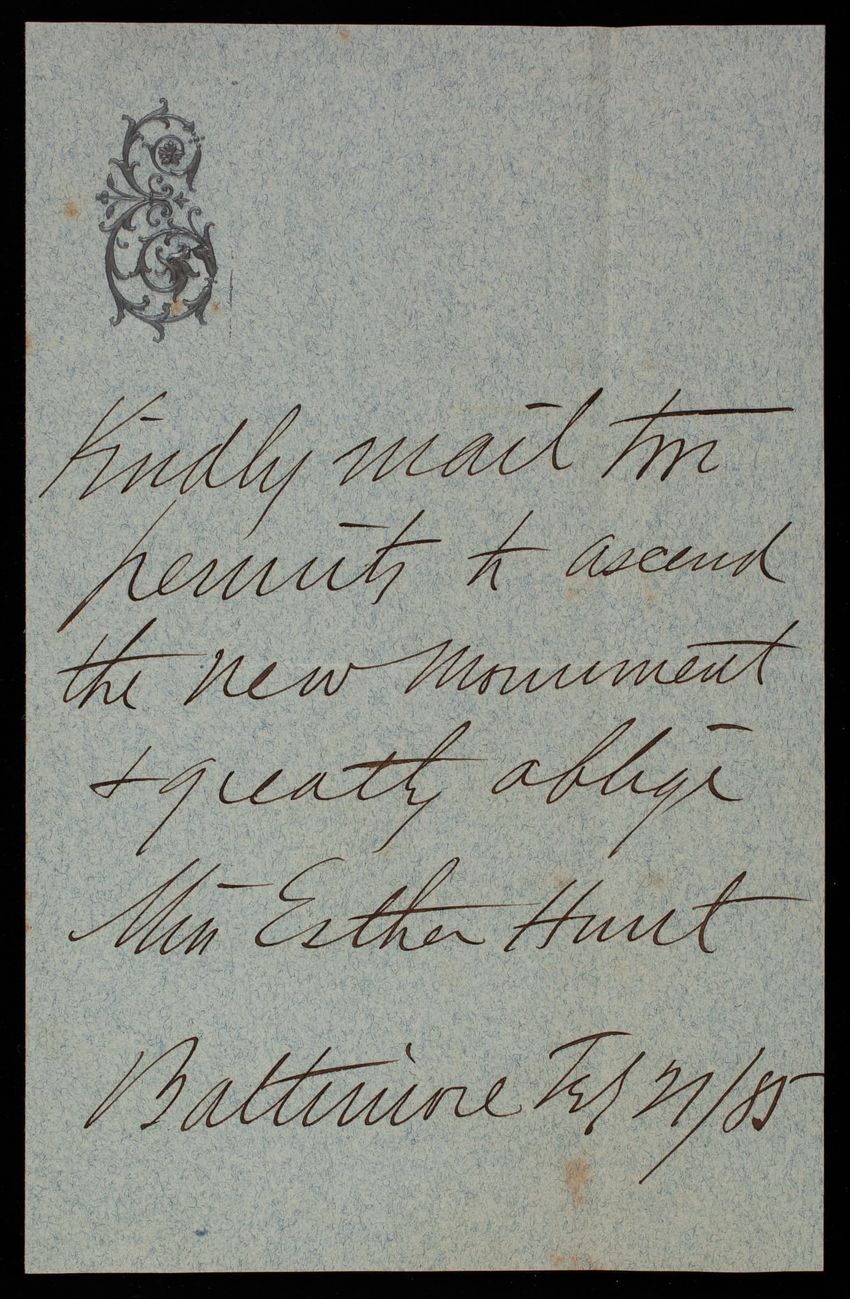 Kindly mail two
permits to ascend
the new monument
& greatly oblige
Miss Esther Hunt
Baltimore Feb 21/85